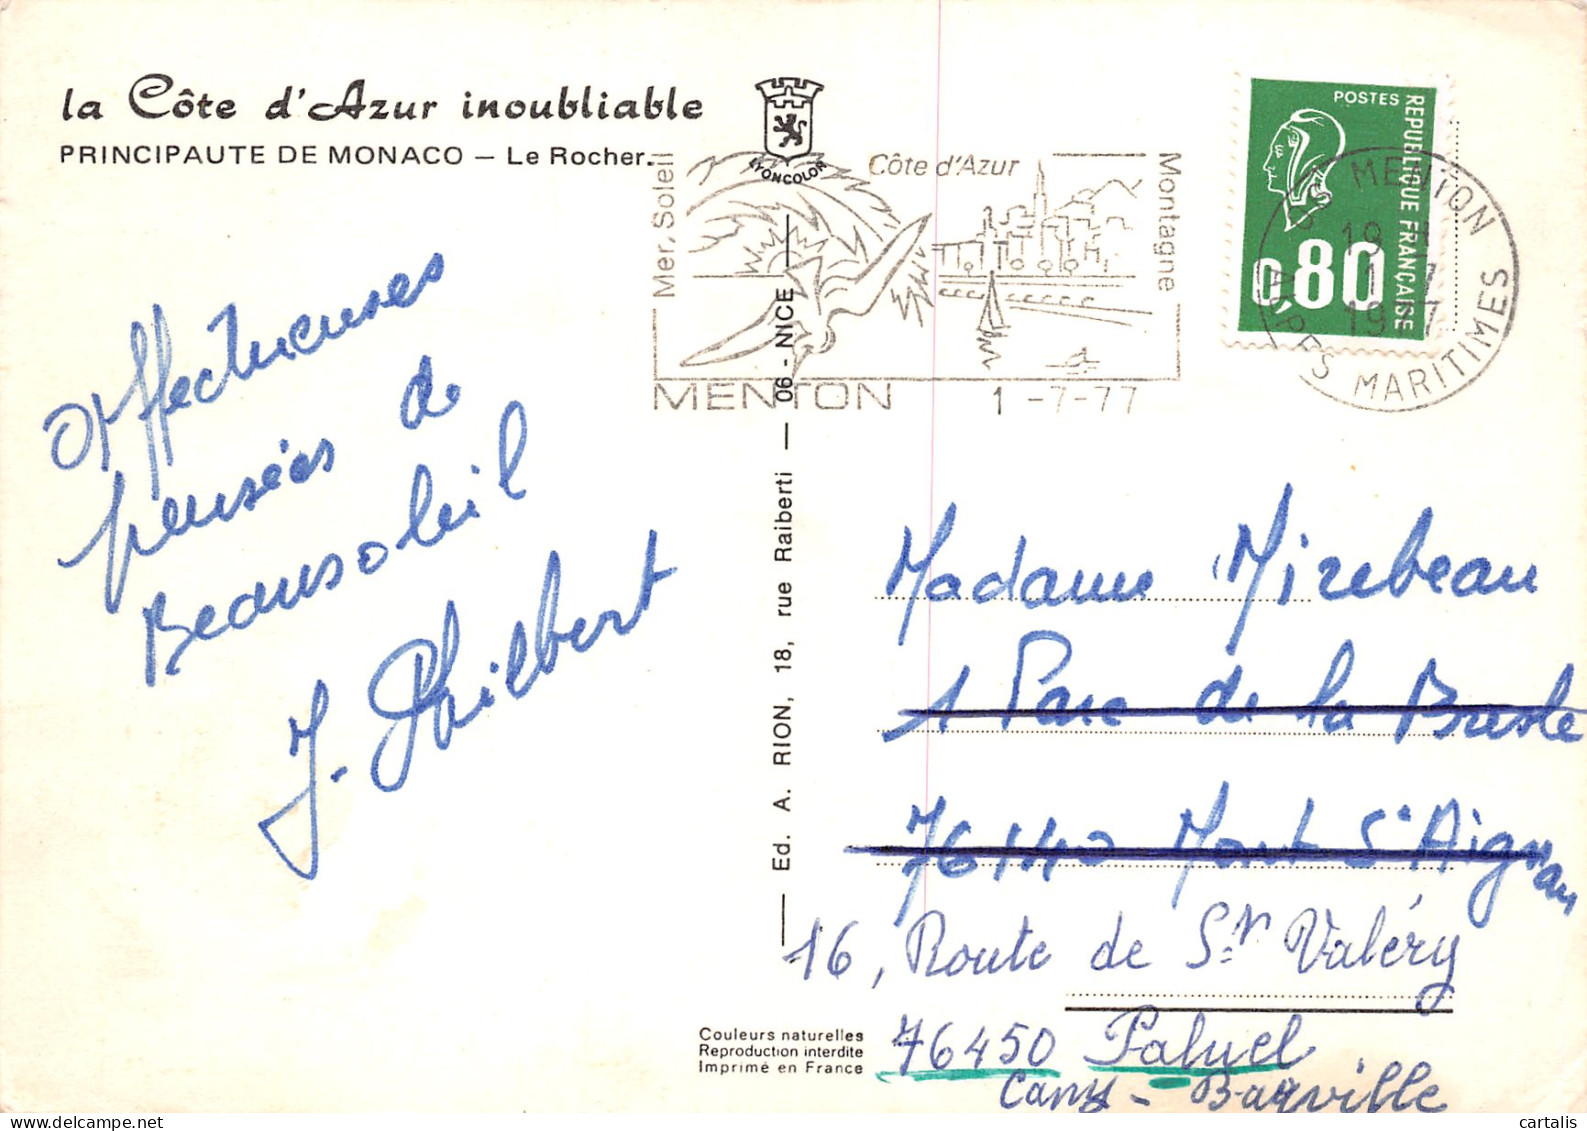 la Côte d'Azur inoubliable
PRINCIPAUTE DE MONACO – Le Rocher.
LYONCOLOR
Mer, Soleil
Côte d'Azur
Montagne
MENTON
1 -7-77
POSTES
REPUBLIQUE FRANÇAISE
0,80
MENTON
19 H
1 7
19 7
ALPES MARITIMES
Affectueuses
pensées de
Beausoleil
J. Philbert
Ed. A. RION, 18, rue Raiberti — 06 - NICE
Madame Mirebeau
1 Parc de la Bresle
76140 Mont St Aignan
16, Route de St Valéry
76450 Paluel
Cany - Barville
Couleurs naturelles
Reproduction interdite
Imprimé en France
cartalis